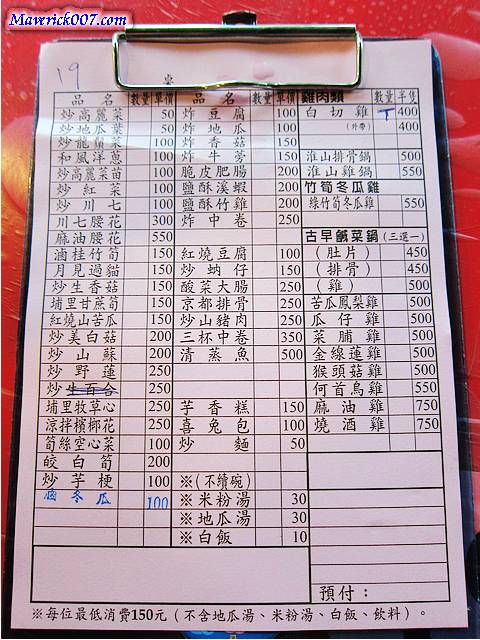 Maverick007.com
19
品名 數量 單價
炒高麗菜 50
炒地瓜葉 50
炒龍鬚菜 100
和風洋蔥 100
炒高麗菜苗 100
炒紅菜 100
炒川七 100
川七腰花 300
麻油腰花 550
滷桂竹筍 150
月見過貓 150
炒生香菇 150
埔里甘蔗筍 150
紅燒山苦瓜 150
炒美白菇 200
炒山蘇 200
炒野蓮 250
炒生百合
埔里牧草心 250
涼拌檳榔花 250
筍絲空心菜 100
皎白筍 200
炒芋梗 100
滷冬瓜 100
品名 數量 單價
炸豆腐 100
炸地瓜 100
炸香菇 150
炸牛蒡 150
脆皮肥腸 200
鹽酥溪蝦 200
鹽酥竹雞 200
炸中卷 250
紅燒豆腐 100
炒蚋仔 150
酸菜大腸 250
京都排骨 250
炒山豬肉 250
三杯中卷 350
清蒸魚 500
芋香糕 150
喜兔包 100
炒麵 50
※(不續碗)
※米粉湯 30
※地瓜湯 30
※白飯 10
雞肉類 數量 半隻
白切雞 400
(外帶) 400
淮山排骨鍋 500
淮山雞鍋 550
竹筍冬瓜雞
綠竹筍冬瓜雞 550
古早鹹菜鍋(三選一)
(肚片) 450
(排骨) 450
(雞) 500
苦瓜鳳梨雞 500
瓜仔雞 500
菜脯雞 500
金線蓮雞 500
猴頭菇雞 500
何首烏雞 550
麻油雞 750
燒酒雞 750
預付：
※每位最低消費150元（不含地瓜湯、米粉湯、白飯、飲料）。